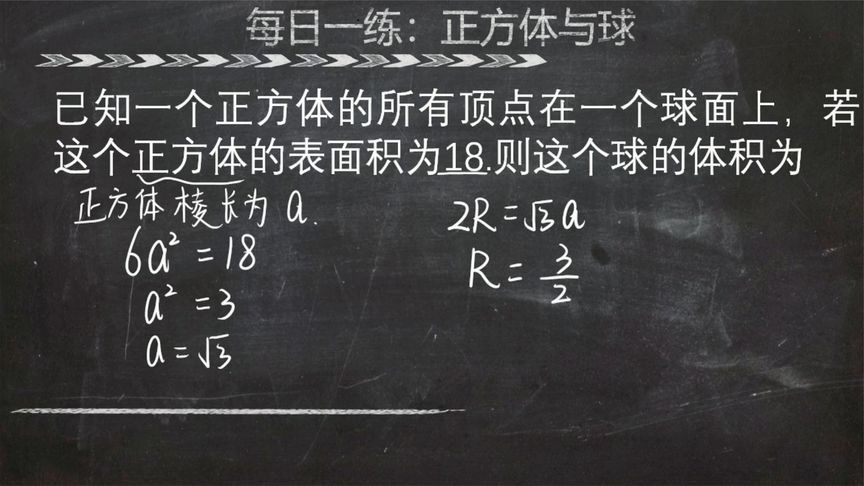 每日一练：正方体与球
已知一个正方体的所有顶点在一个球面上，若
这个正方体的表面积为18.则这个球的体积为
正方体棱长为 a.
6a² = 18
a² = 3
a = √3
2R = √3a
R = 3/2